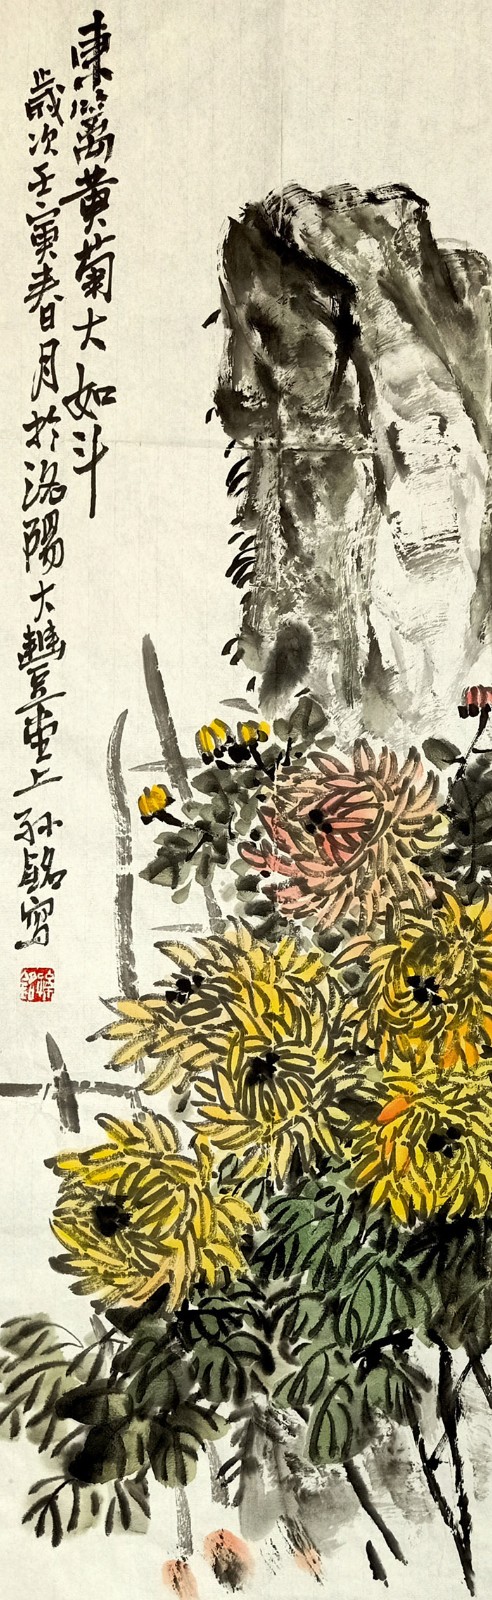 東籬黃菊大如斗
歲次壬寅春月於洛陽大豐堂上孙銘寫